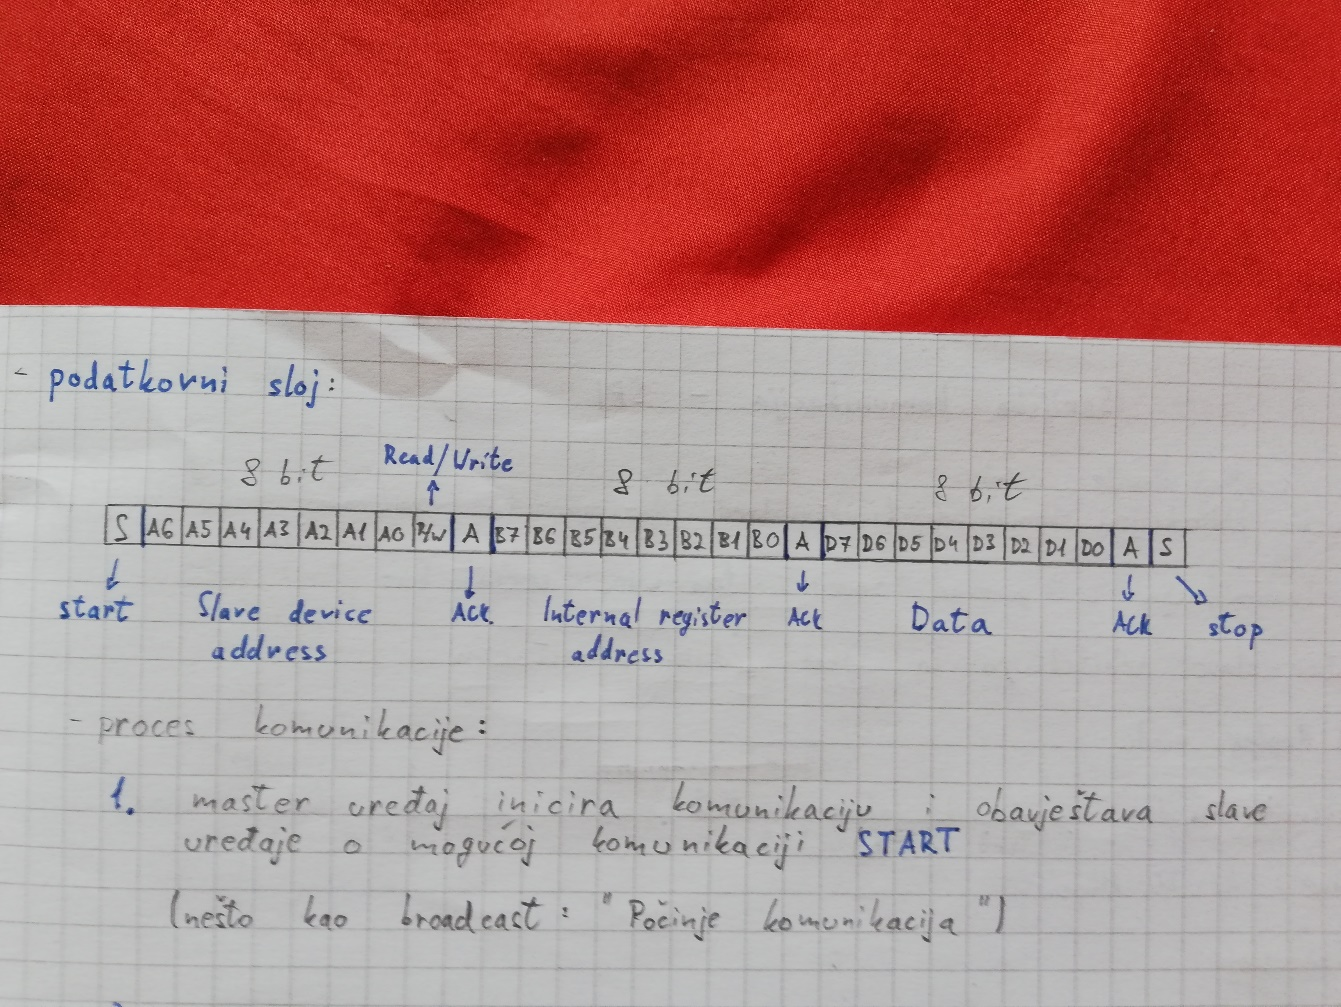 - podatkovni sloj:
8 bit Read/Write 8 bit 8 bit
S A6 A5 A4 A3 A2 A1 A0 R/W A B7 B6 B5 B4 B3 B2 B1 B0 A D7 D6 D5 D4 D3 D2 D1 D0 A S
start Slave device Ack. Internal register Ack Data Ack stop
address address
- proces komunikacije:
1. master uređaj inicira komunikaciju i obavještava slave
uređaje o mogućoj komunikaciji START
(nešto kao broadcast: "Počinje komunikacija")